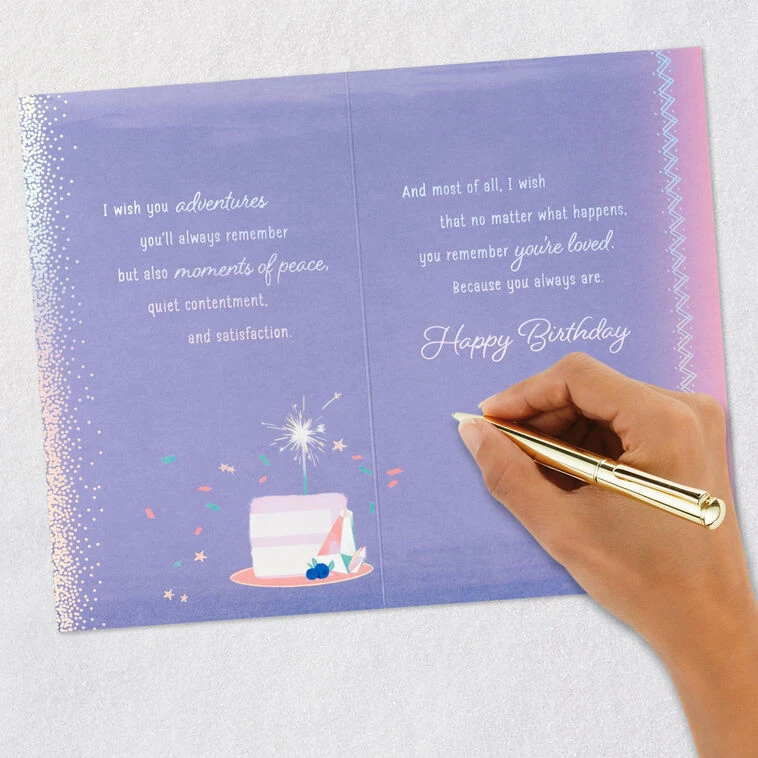 I wish you adventures
you'll always remember
but also moments of peace,
quiet contentment,
and satisfaction.
And most of all, I wish
that no matter what happens,
you remember you're loved.
Because you always are.
Happy Birthday